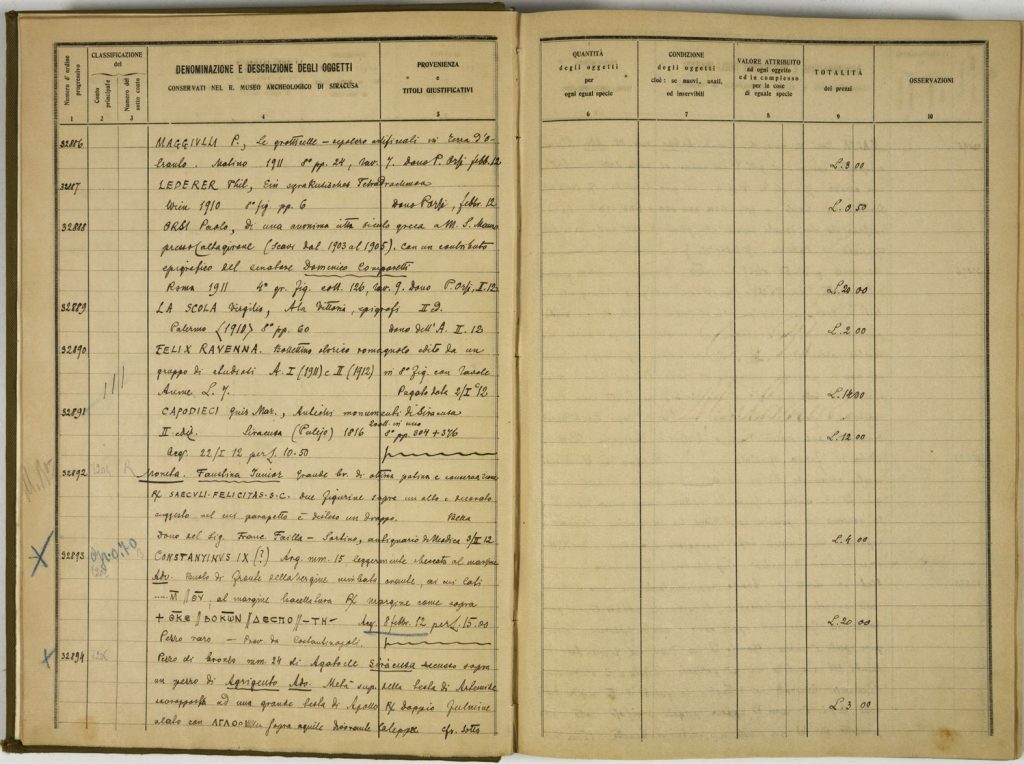 Numero d' ordine progressivo
CLASSIFICAZIONE
del
Conto principale
Numero del sotto conto
DENOMINAZIONE E DESCRIZIONE DEGLI OGGETTI
CONSERVATI NEL R. MUSEO ARCHEOLOGICO DI SIRACUSA
PROVENIENZA
e
TITOLI GIUSTIFICATIVI
1 2 3 4 5
32886 MAGGIULLI P., Le grotticelle - sepolcro artificiali in Terra d'O-
tranto. Matino 1911 8° pp. 24, tav. 7. Dono P. Orsi febb. 12
32887 LEDERER Phil., Ein syrakusisches Tetradrachmon
Wien 1910 8° fig. pp. 6 Dono P. Orsi, febbr. 12
32888 ORSI Paolo, di una anonima città siculo greca a M. S. Mauro
presso Caltagirone (Scavi dal 1903 al 1905). Con un contributo
epigrafico del senatore Domenico Comparetti
Roma 1911 4° gr. Fig. coll. 126, tav. 9. Dono P. Orsi, II.12
32889 LA SCOLA Virgilio, Alla Vittoria, epigrafi II ed.
Palermo (1910) 8° pp. 60 Dono dell'A. II. 12
32890 FELIX RAVENNA. Bollettino storico romagnolo edito da un
gruppo di studiosi A. I (1911) e II (1912) in 8° Fig. con tavole
Annue L. 7. Pagato data 2/I 12
32891 CAPODIECI Gius. Mar., Antichi monumenti di Siracusa
II ediz. Siracusa (Pulejo) 1816 2 voll. in uno 8° pp. 304 + 376
Acq. 22/I 12 per L. 10.50
32892 Moneta. Faustina Junior Grande br. di ottima patina e conservazione
R/ SAECULI·FELICITAS·S.C. due figurine sopra un alto e decorato
suggesto nel cui parapetto è disteso un drappo. Bella
Dono del Sig. Franc. Failla - Sortino, antiquario da Modica 3/II 12
32893 gr. 0.70 CONSTANTINUS IX (?) Arg. mm. 15 leggermente sbeccato al margine
Adv. Busto di fronte della Vergine nimbata orante, ai cui lati
M̅ // Θ̅Υ̅, al margine R/ margine come sopra
+ ΘΚΕ // ΒΟΚωΝ // ΔΕСΠΟ // - ΤΗ - Acq. 8 febbr. 12 per L. 15.00
Pezzo raro - Prov. da Costantinopoli.
32894 Pezzo di bronzo mm. 24 di Agatocle Siracusa recusso sopra
un pezzo di Agrigento Adv. Metà sup. della testa di Artemide
sovrapposta ad una grande testa di Apollo R/ Doppio fulmine
alato con sopra aquile divorante lalepre cfr. sotto
QUANTITÀ
degli oggetti
per
ogni egual specie
CONDIZIONE
degli oggetti
cioè: se nuovi, usati,
od inservibili
VALORE ATTRIBUITO
ad ogni oggetto
ed in complesso
per le cose
di eguale specie
TOTALITÀ
dei prezzi
OSSERVAZIONI
6 7 8 9 10
L. 3 00
L. 0 50
L. 20 00
L. 2 00
L. 14 00
L. 12 00
L. 4 00
L. 20 00
L. 3 00